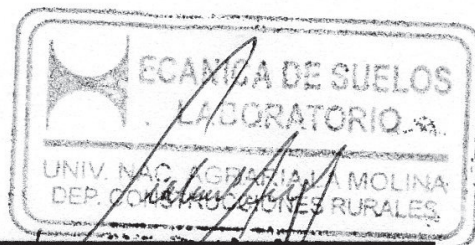 MECANICA DE SUELOS
LABORATORIO
UNIV. NAC. AGRARIA LA MOLINA
DEP. CONSTRUCCIONES RURALES